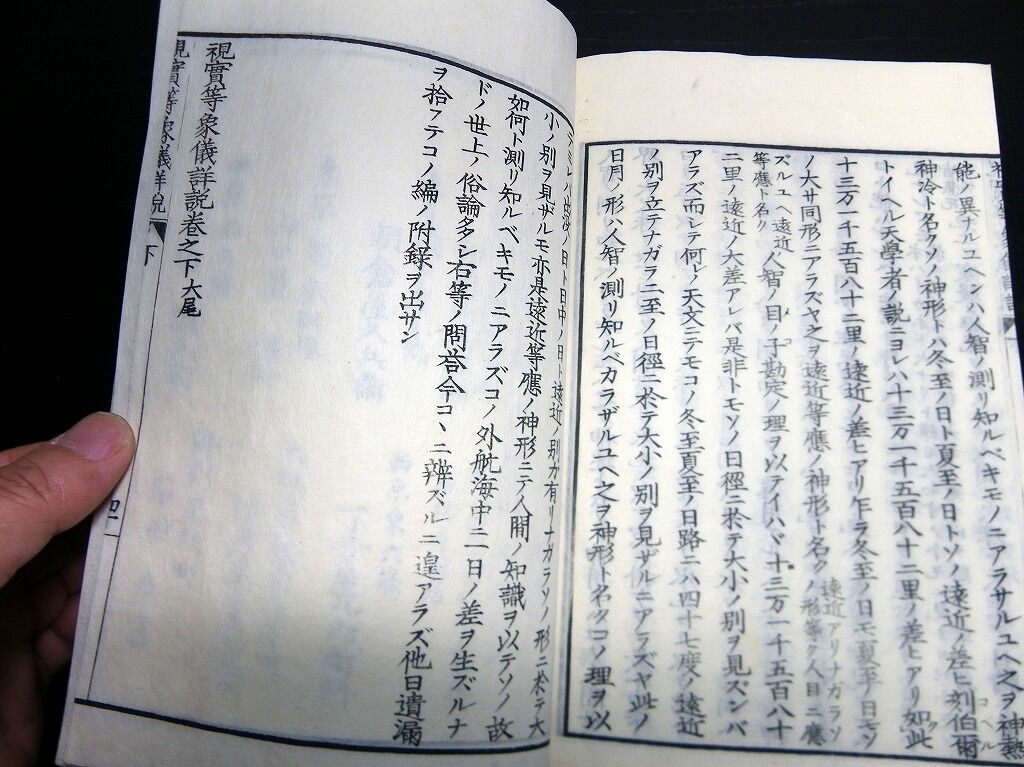 能ノ異ナルユヘンハ人智ノ測リ知ルベキモノニアラサルユヘ之ヲ神熱
神冷ト名クソノ神形トハ冬至ノ日ト夏至ノ日トソノ遠近ノ差ヒ刻伯爾コペル
トイヘル天學者ノ説ニヨレハ十三万一千五百八十二里ノ差ヒアリ如此
十三万一千五百八十二里ノ遠近ノ差ヒアリ乍ラ冬至ノ日モ夏至ノ日モソ
ノ大サ同形ニアラズヤ之ヲ遠近等應ノ神形ト名ク遠近アリナガラソノ形等ク人目ニ應
ズルユヘ遠近等應ト名ク人智ノ目ノ子勘定ノ理ヲ以テイハバ十三万一千五百八十
二里ノ遠近ノ大差アレバ是非トモソノ日徑ニ於テ大小ノ別ヲ見ズンバ
アラズ而シテ何レノ天文ニテモコノ冬至夏至ノ日路ニハ四十七度ノ遠近
ノ別ヲ立テナガラ二至ノ日徑ニ於テ大小ノ別ヲ見ザルニアラズヤ此ノ
日月ノ形ハ人智ノ測リ知ルベカラザルユヘ之ヲ神形ト名クコノ理ヲ以
テミレハ出沒ノ日ト日中ノ日ト遠近ノ別カ有リナカラソノ形ニ於テ大
小ノ別ヲ見ザルモ亦是遠近等應ノ神形ニテ人間ノ知識ヲ以テソノ故
如何ト測リ知ルベキモノニアラズコノ外航海中ニ一日ノ差ヲ生ズルナ
ドノ世上ノ俗論多シ右等ノ問荅今コヽニ辨ズルニ遑アラズ他日遺漏
ヲ拾フテコノ編ノ附録ヲ出サン
視實等象儀詳説卷之下大尾
視實等象儀詳説 下